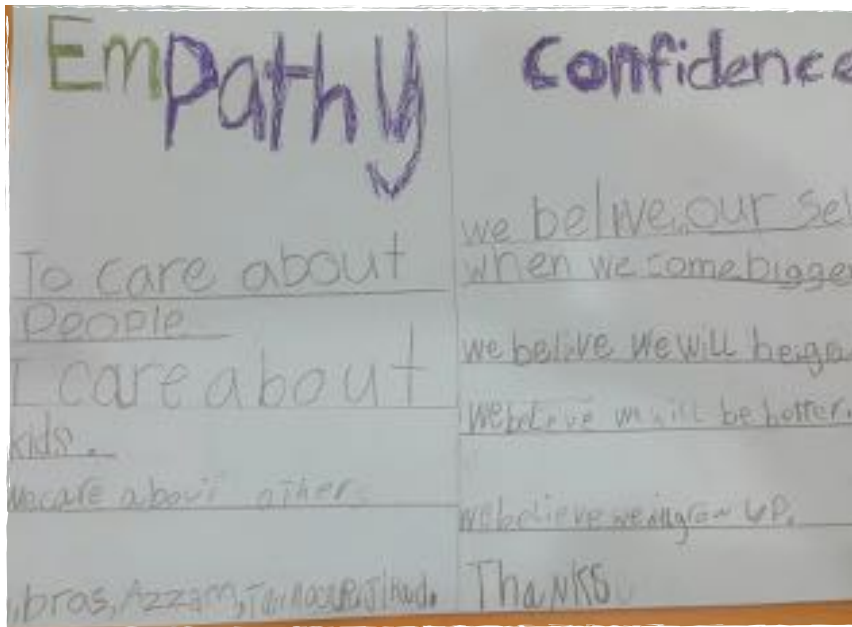 Empathy
To care about
People
I care about
kids.
We care about other
bros, Azzam,
Confidence
we belive our sel
when we come bigger
we belive we will be
we will be
we believe we grow up.
Thanks